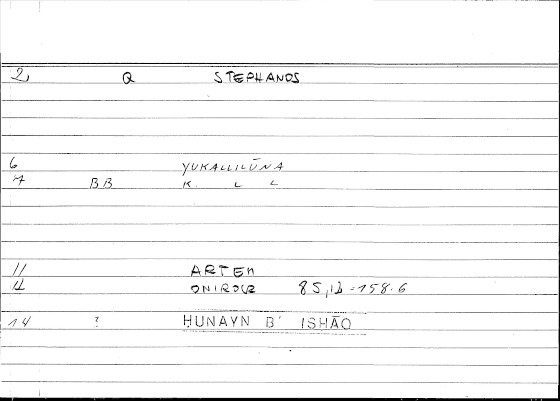 2, Q STEPHANOS
6 YUKALLILŪNA
7 BB K. L L
11 ARTEM
4 ONIROCR 85,12=158.6
14 ? HUNAYN B' ISHĀQ